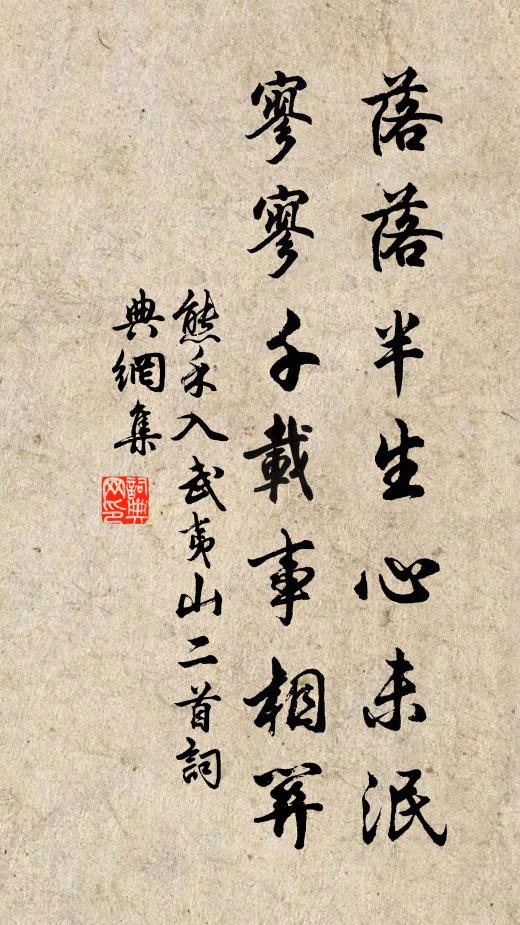 落落半生心未泯
寥寥千載事相關
熊禾入武夷山二首詞
典網集
詞典
网印